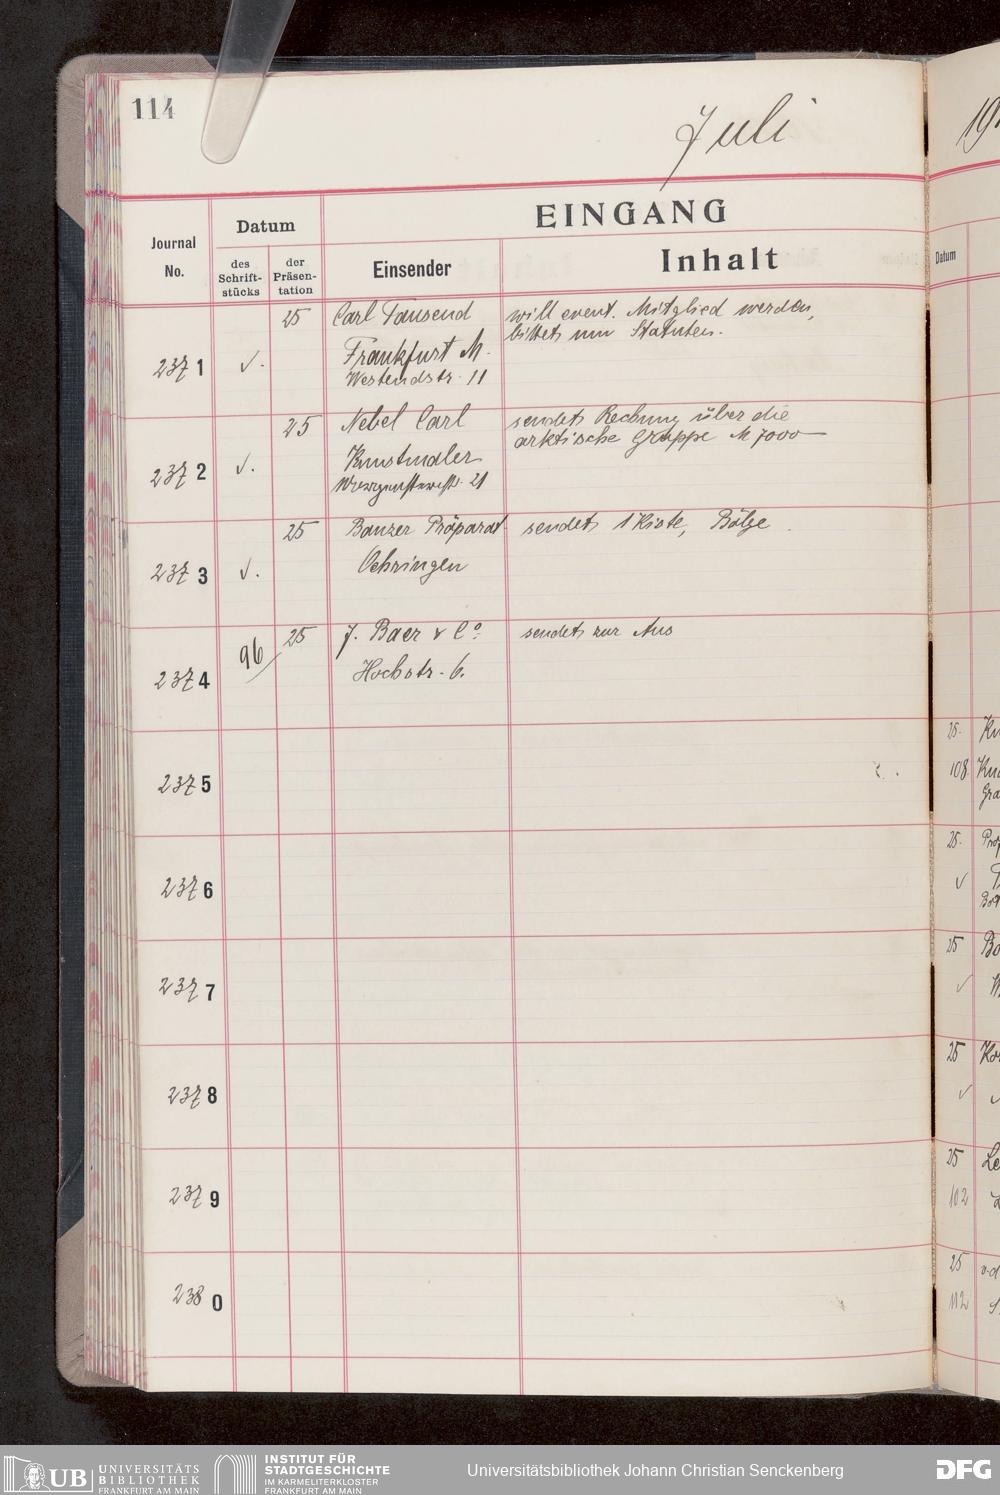 114
Juli
19
EINGANG
Journal
No.
Datum
des
Schrift-
stücks
der
Präsen-
tation
Einsender
Inhalt
Datum
2371
√.
25
Carl Tausend
Frankfurt M.
Westendstr. 11
will event. Mitglied werden,
bittet um Statuten.
2372
√.
25
Nebel Carl
Kunstmaler
21
sendet Rechnung über die
arktische Gruppe M 7000—
2373
√.
25
Banzer Präparat
Oehringen
sendet 1 Kiste, Bälge
2374
96/
25
J. Baer & Co.
Hochstr. 6.
sendet zur Aus
2375
2376
2377
2378
2379
2380
25.
108
25.
√
25
√
25
√
25
102
25
112
UB UNIVERSITÄTS
BIBLIOTHEK
FRANKFURT AM MAIN
INSTITUT FÜR
STADTGESCHICHTE
IM KARMELITERKLOSTER
FRANKFURT AM MAIN
Universitätsbibliothek Johann Christian Senckenberg
DFG